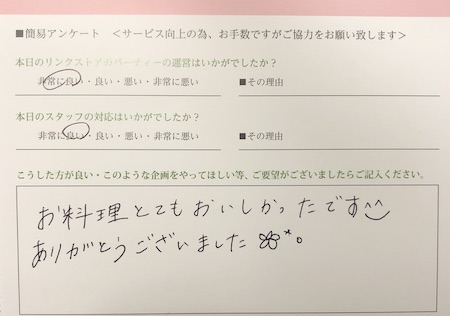 ■簡易アンケート ＜サービス向上の為、お手数ですがご協力をお願い致します＞
本日のリンクストアのパーティーの運営はいかがでしたか？
非常に良い・良い・悪い・非常に悪い ■その理由
本日のスタッフの対応はいかがでしたか？
非常に良い・良い・悪い・非常に悪い ■その理由
こうした方が良い・このような企画をやってほしい等、ご要望がございましたらご記入ください。
お料理とてもおいしかったです
ありがとうございました